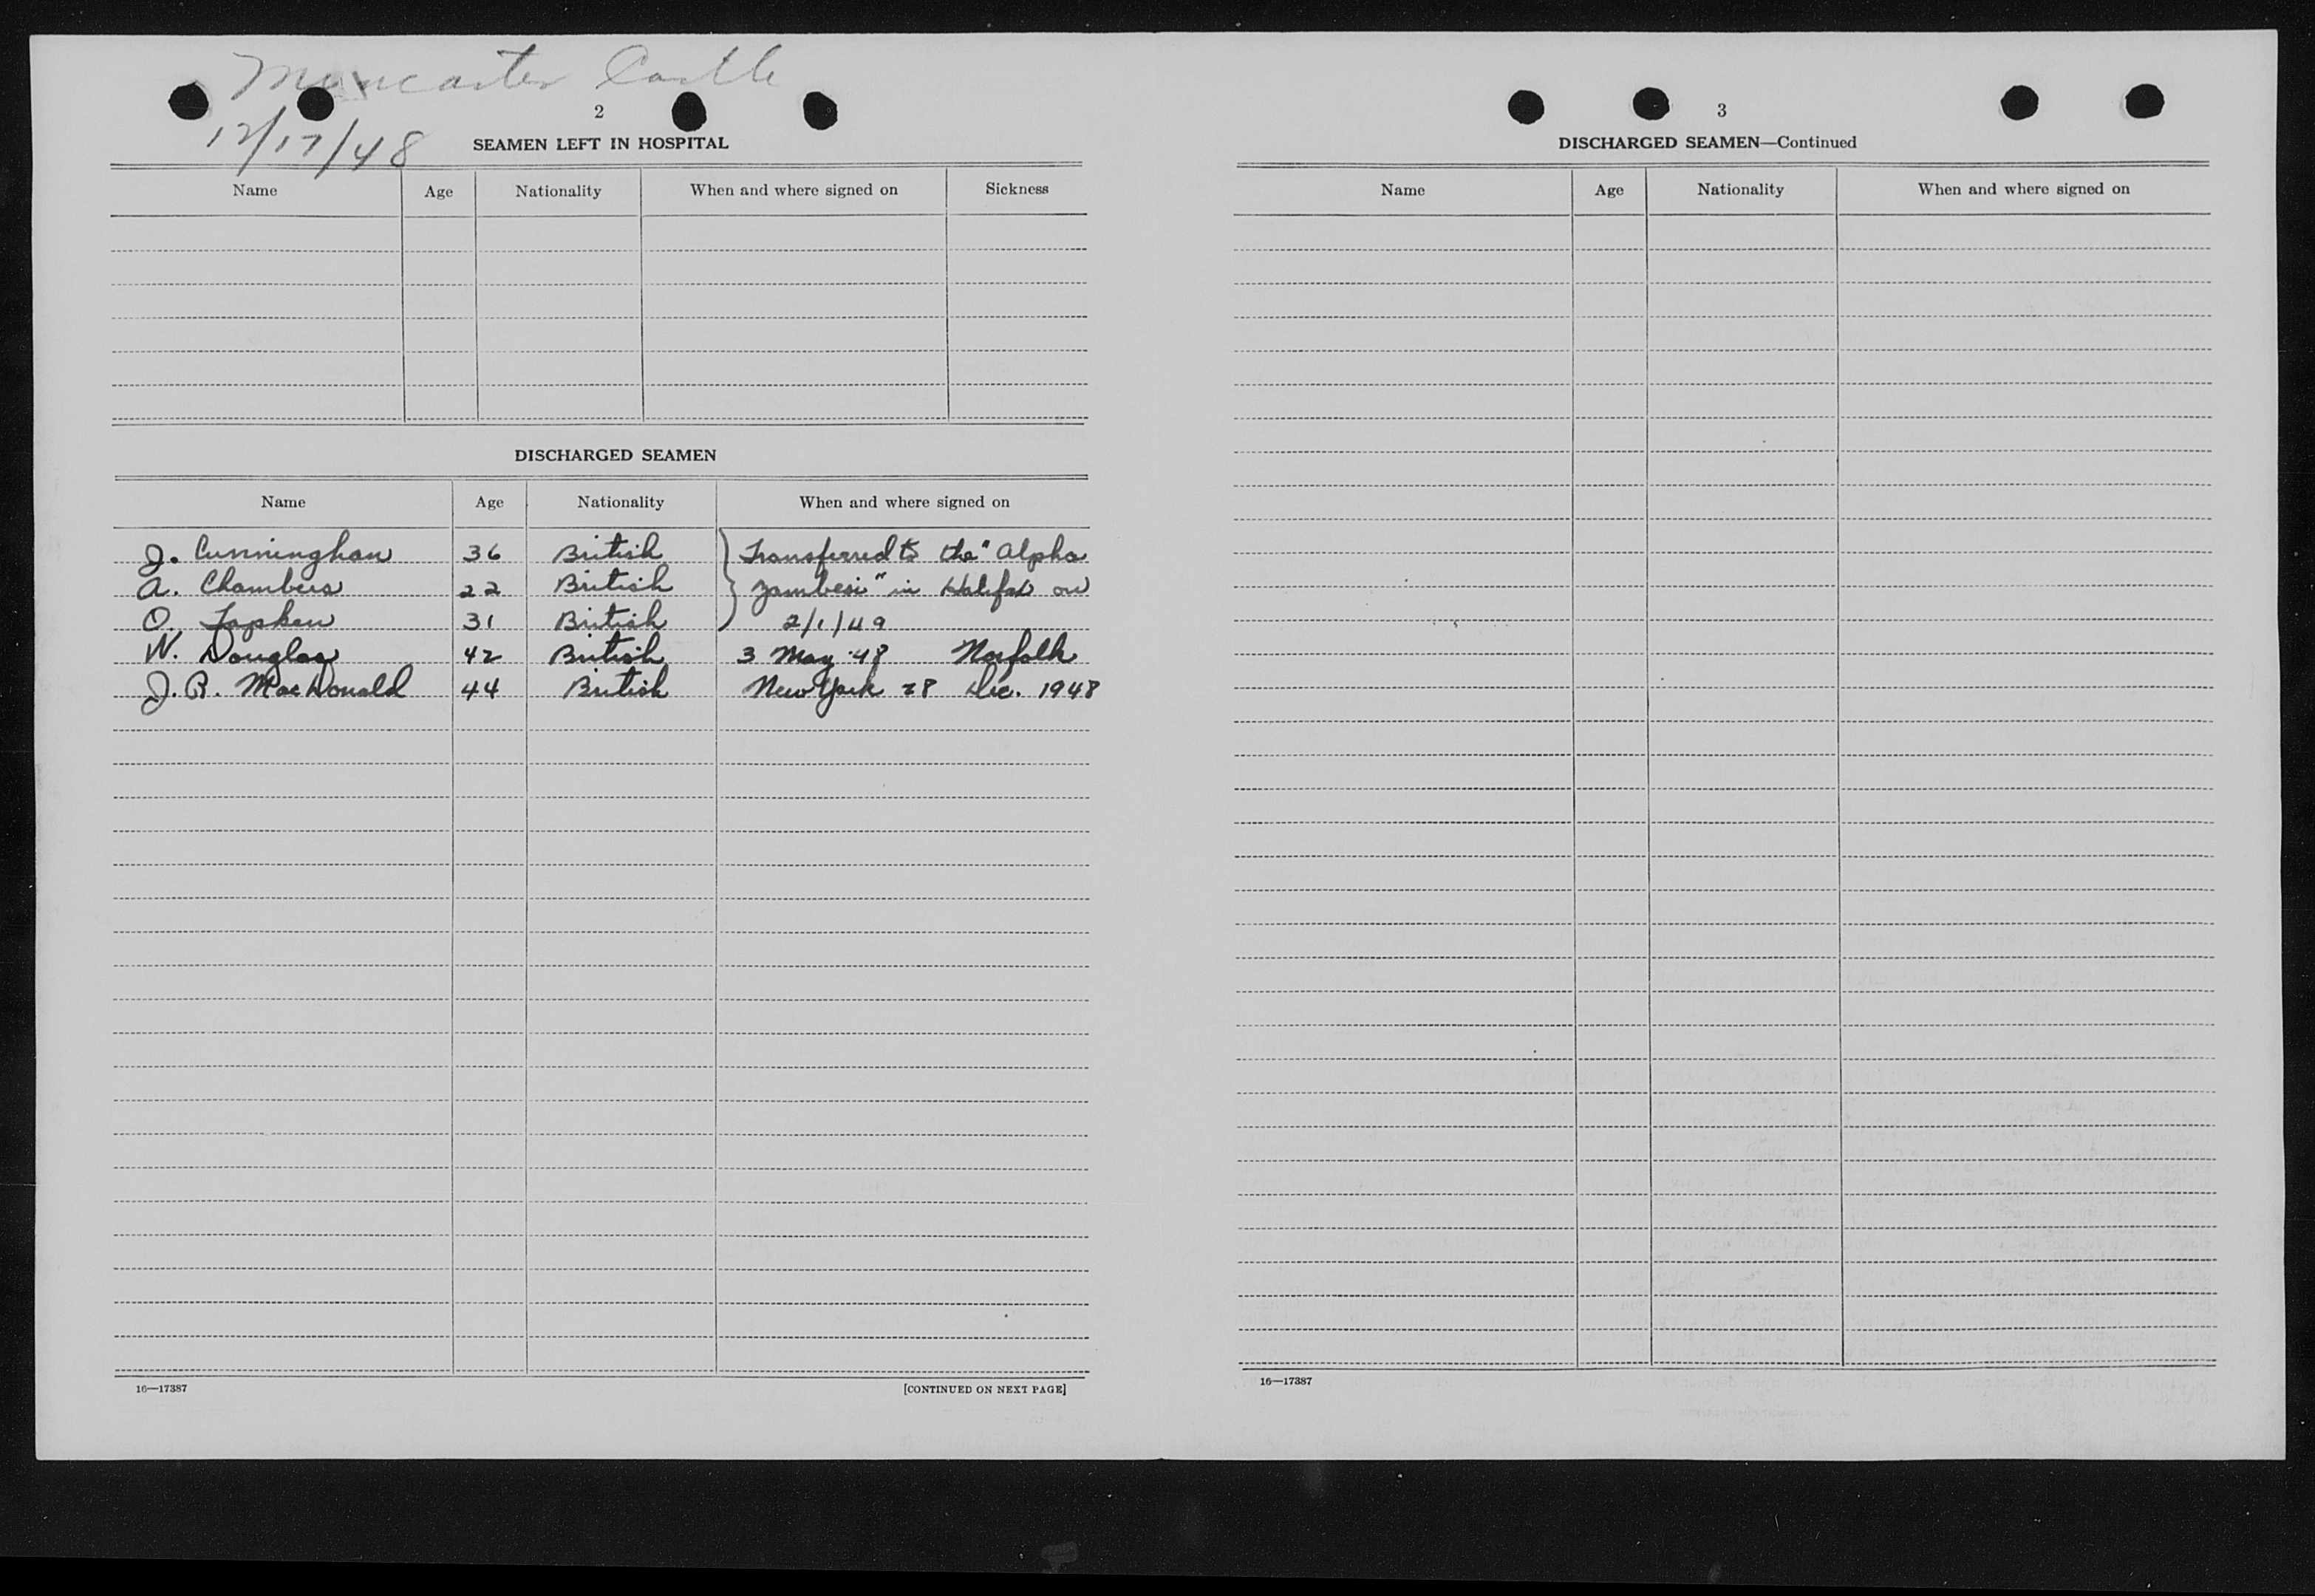 Muncaster Castle
12/17/48
2
SEAMEN LEFT IN HOSPITAL
Name Age Nationality When and where signed on Sickness
DISCHARGED SEAMEN
Name Age Nationality When and where signed on
J. Cunningham 36 British Transferred to the "Alpha
A. Chambers 22 British Zambesi" in Halifax on
O. Tapken 31 British 2/1/49
W. Douglas 42 British 3 May '48 Norfolk
J. R. MacDonald 44 British New York 28 Dec. 1948
16—17387
[CONTINUED ON NEXT PAGE]
3
DISCHARGED SEAMEN—Continued
Name Age Nationality When and where signed on
16—17387